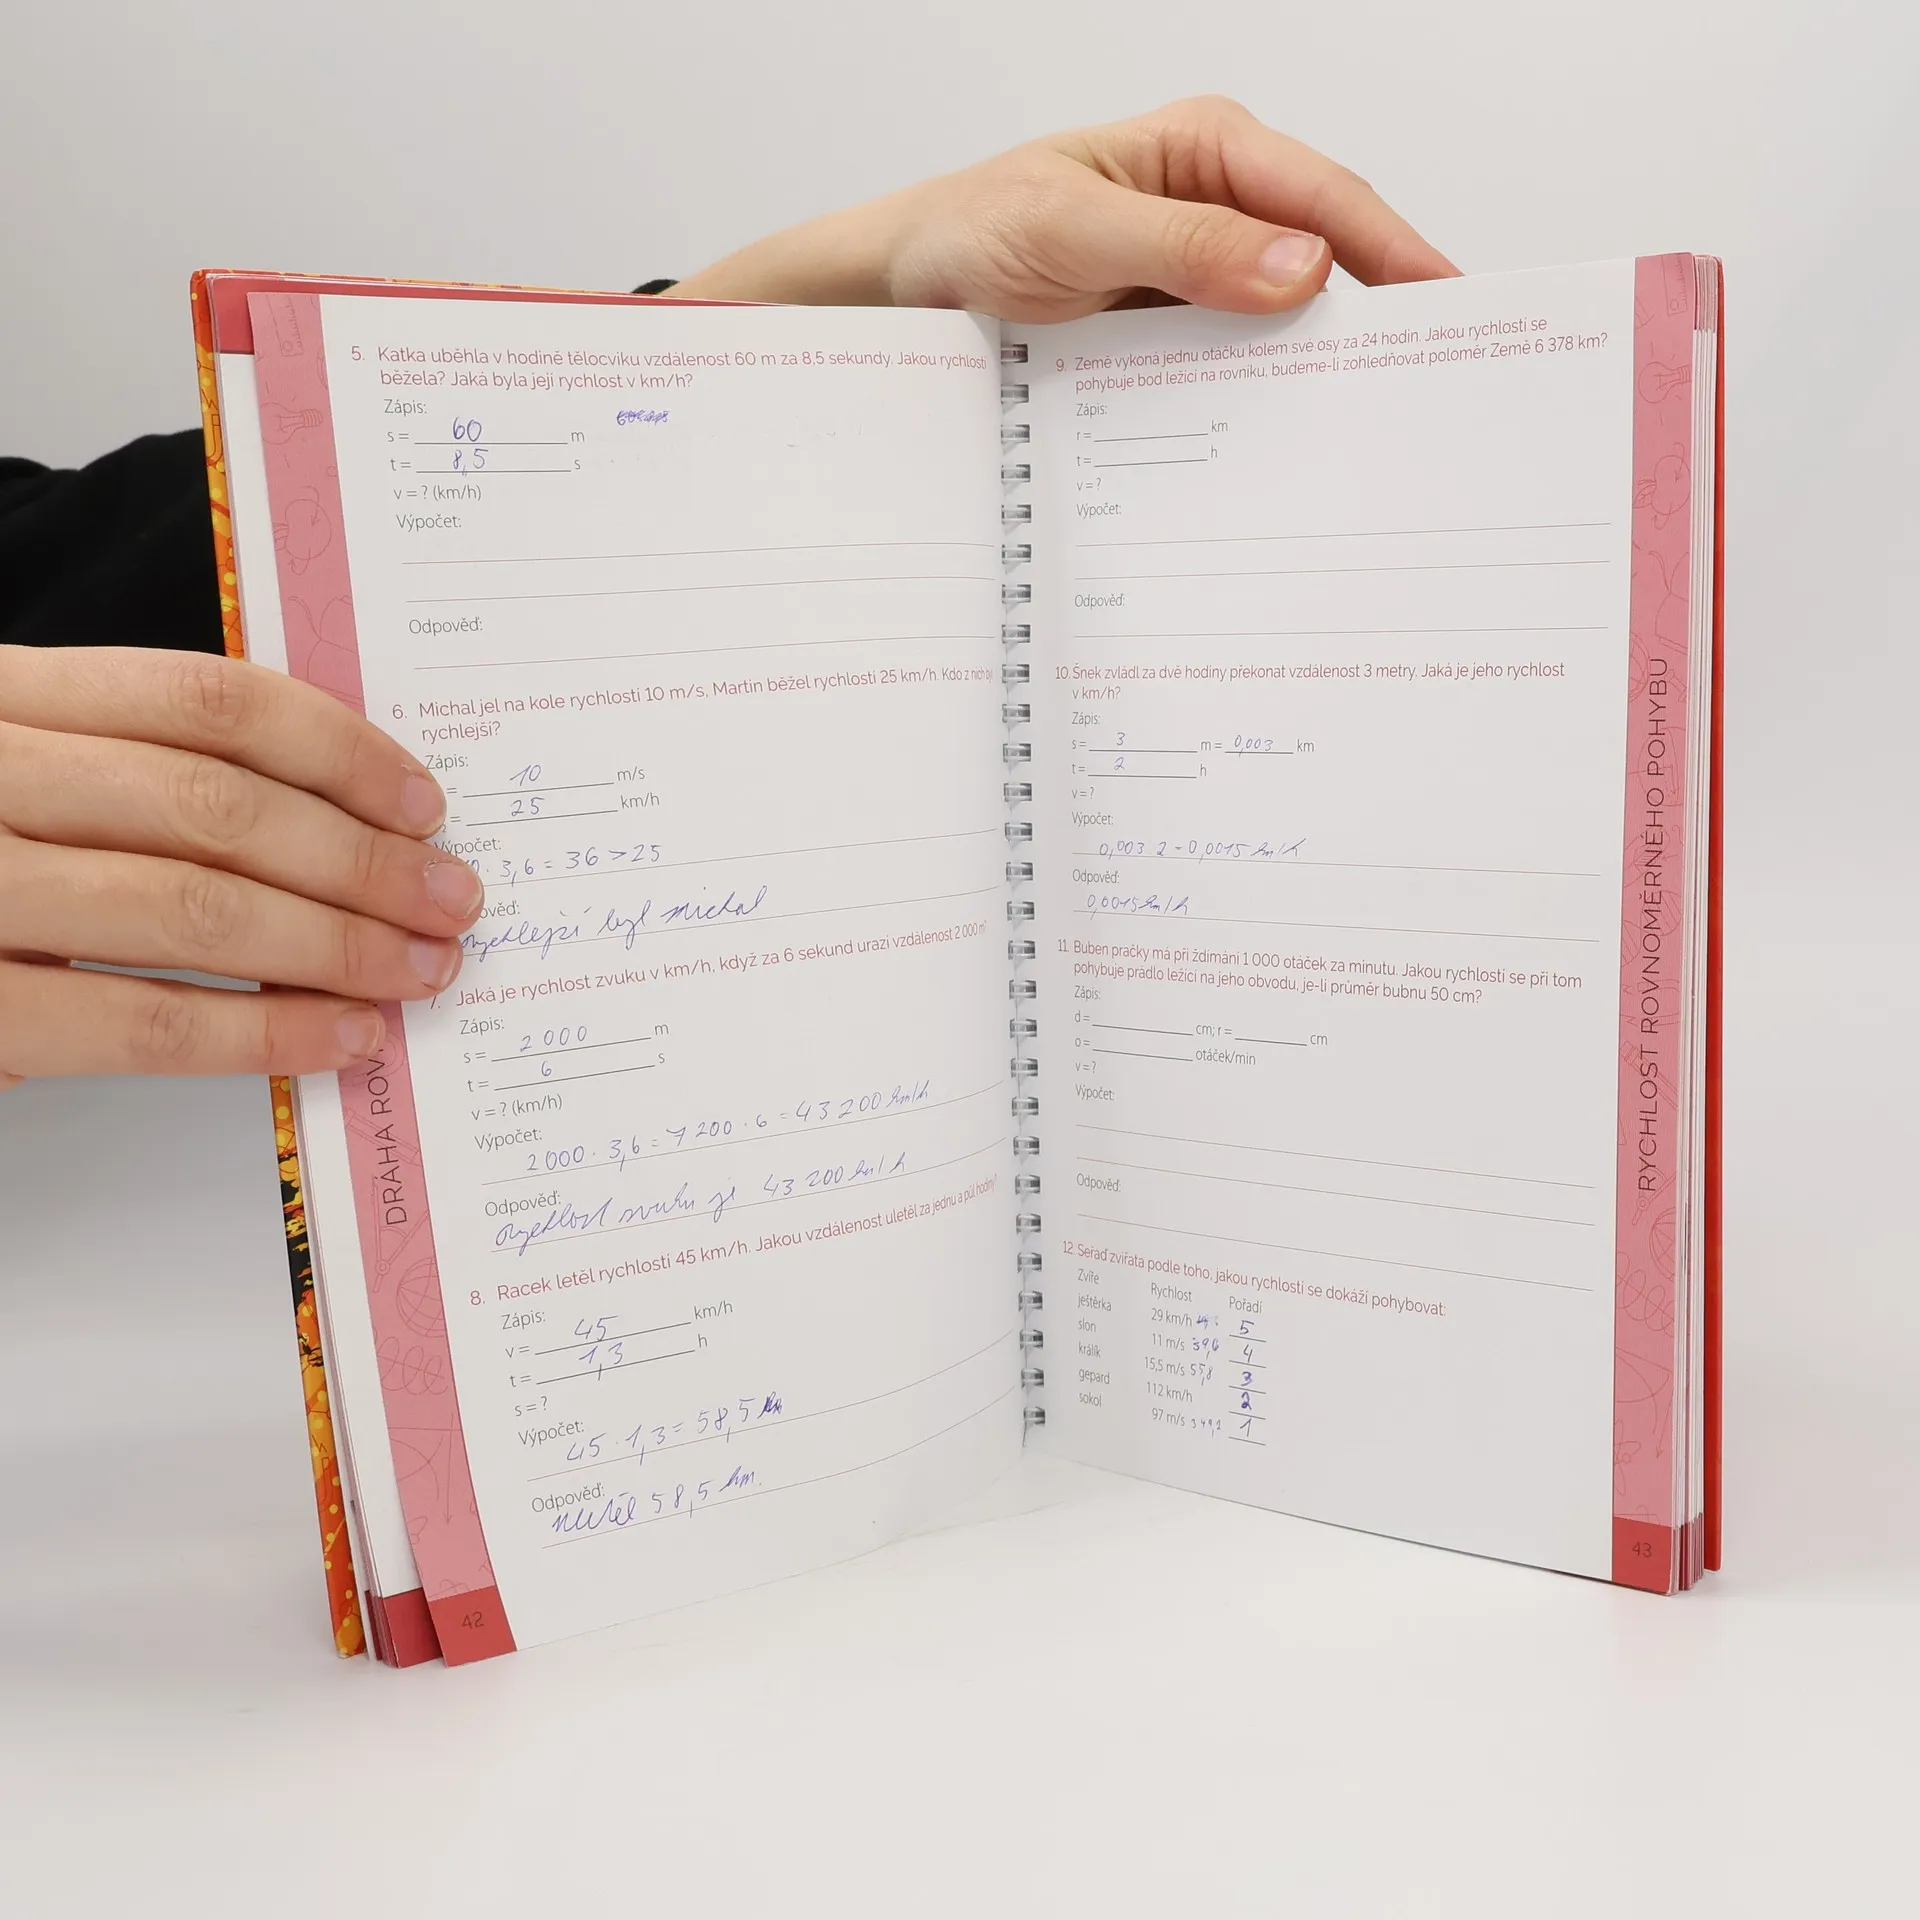 5. Katka uběhla v hodině tělocviku vzdálenost 60 m za 8,5 sekundy. Jakou rychlostí
běžela? Jaká byla její rychlost v km/h?
Zápis:
s = 60 m
t = 8,5 s
v = ? (km/h)
Výpočet:
Odpověď:
6. Michal jel na kole rychlostí 10 m/s, Martin běžel rychlostí 25 km/h. Kdo z nich
rychlejší?
Zápis:
= 10 m/s
2 = 25 km/h
Výpočet:
0 · 3,6 = 36 > 25
ověď:
rychlejší byl michal
7. Jaká je rychlost zvuku v km/h, když za 6 sekund urazí vzdálenost 2 000 m?
Zápis:
s = 2 000 m
t = 6 s
v = ? (km/h)
Výpočet:
2 000 · 3,6 = 7 200 · 6 = 43 200 km/h
Odpověď:
rychlost zvuku je 43 200 km/h
8. Racek letěl rychlostí 45 km/h. Jakou vzdálenost uletěl za jednu a půl hodiny?
Zápis:
v = 45 km/h
t = 1,3 h
s = ?
Výpočet:
45 · 1,3 = 58,5 km
Odpověď:
uletěl 58,5 km.
DRÁHA ROV
42
9. Země vykoná jednu otáčku kolem své osy za 24 hodin. Jakou rychlostí se
pohybuje bod ležící na rovníku, budeme-li zohledňovat poloměr Země 6 378 km?
Zápis:
r = km
t = h
v = ?
Výpočet:
Odpověď:
10. Šnek zvládl za dvě hodiny překonat vzdálenost 3 metry. Jaká je jeho rychlost
v km/h?
Zápis:
s = 3 m = 0,003 km
t = 2 h
v = ?
Výpočet:
0,003 2 = 0,0015 km/h
Odpověď:
0,0015 km/h
11. Buben pračky má při ždímání 1 000 otáček za minutu. Jakou rychlostí se při tom
pohybuje prádlo ležící na jeho obvodu, je-li průměr bubnu 50 cm?
Zápis:
d = cm; r = cm
o = otáček/min
v = ?
Výpočet:
Odpověď:
12. Seřaď zvířata podle toho, jakou rychlostí se dokáží pohybovat:
Zvíře Rychlost Pořadí
ještěrka 29 km/h 5
slon 11 m/s 39,6 4
králík 15,5 m/s 55,8 3
gepard 112 km/h 2
sokol 97 m/s 349,2 1
RYCHLOST ROVNOMĚRNÉHO POHYBU
43